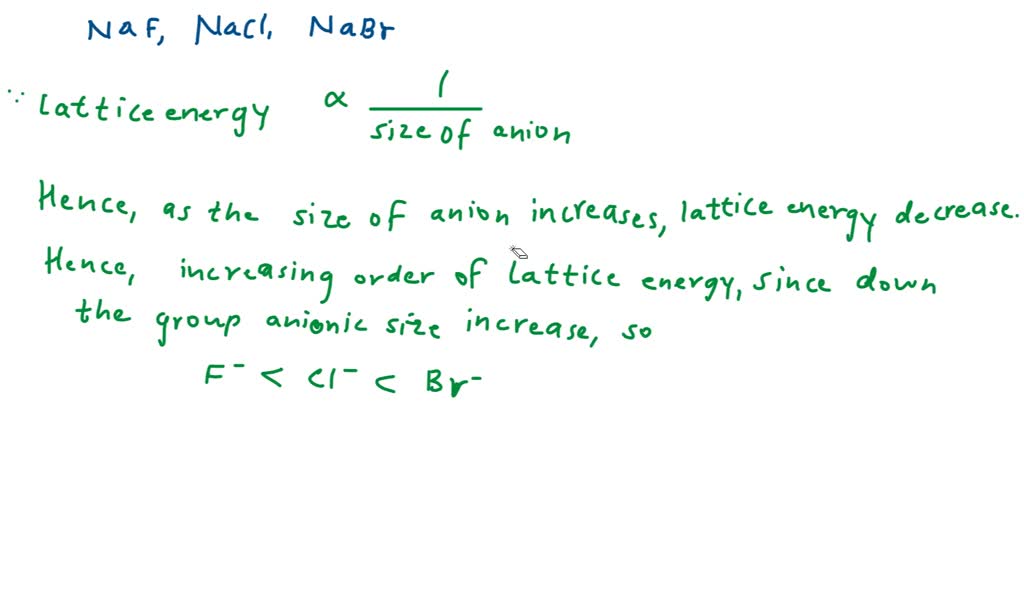 NaF, NaCl, NaBr
∵ Lattice energy ∝ 1 / size of anion
Hence, as the size of anion increases, lattice energy decrease.
Hence, increasing order of lattice energy, since down
the group anionic size increase, so
F⁻ < Cl⁻ < Br⁻